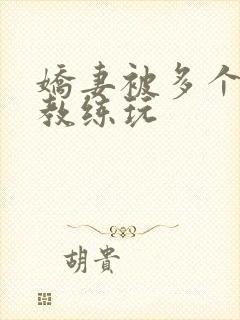 嬌妻被多个
教练玩
胡貴